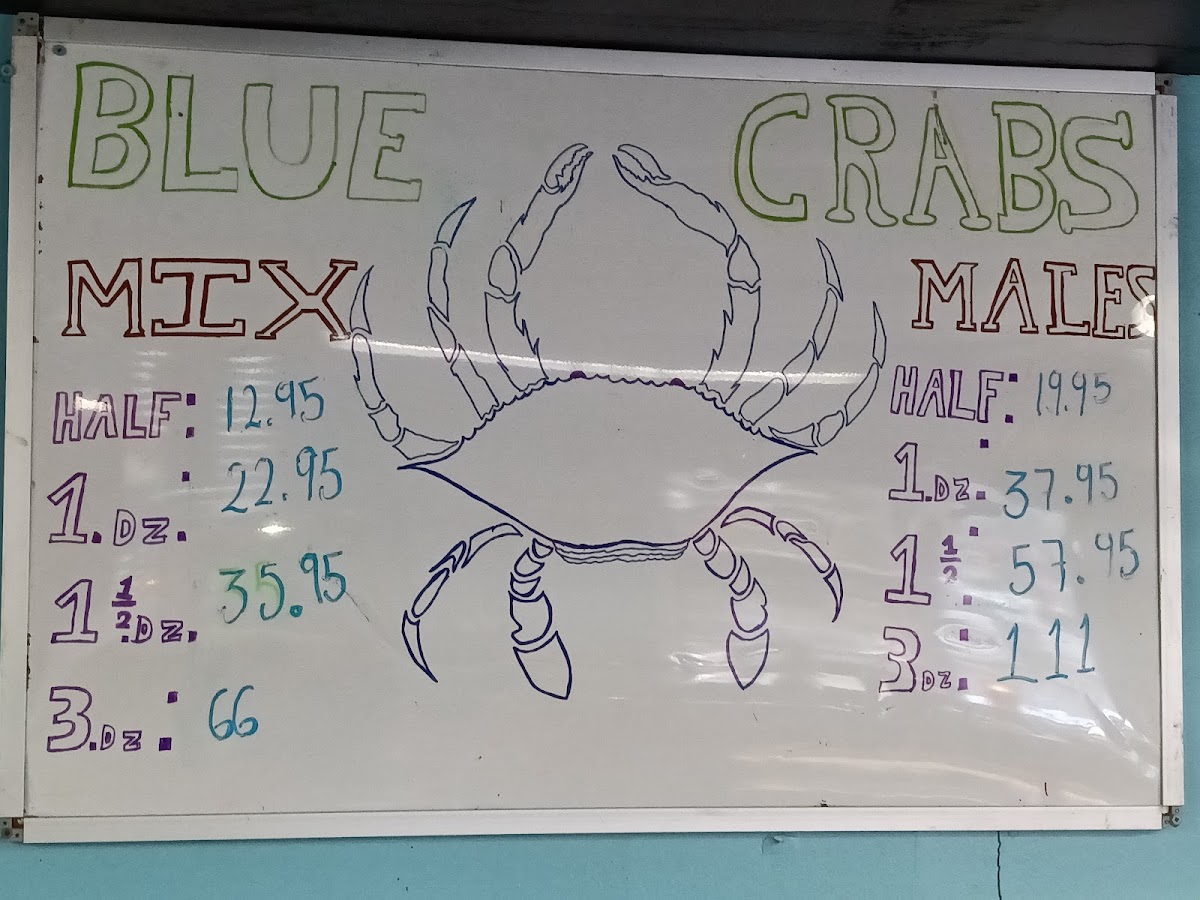 BLUE CRABS
MIX
HALF: 12.95
1.Dz.: 22.95
1 1/2.Dz. 35.95
3.Dz: 66
MALES
HALF: 19.95
1.Dz.: 37.95
1 1/2: 57.95
3Dz: 111